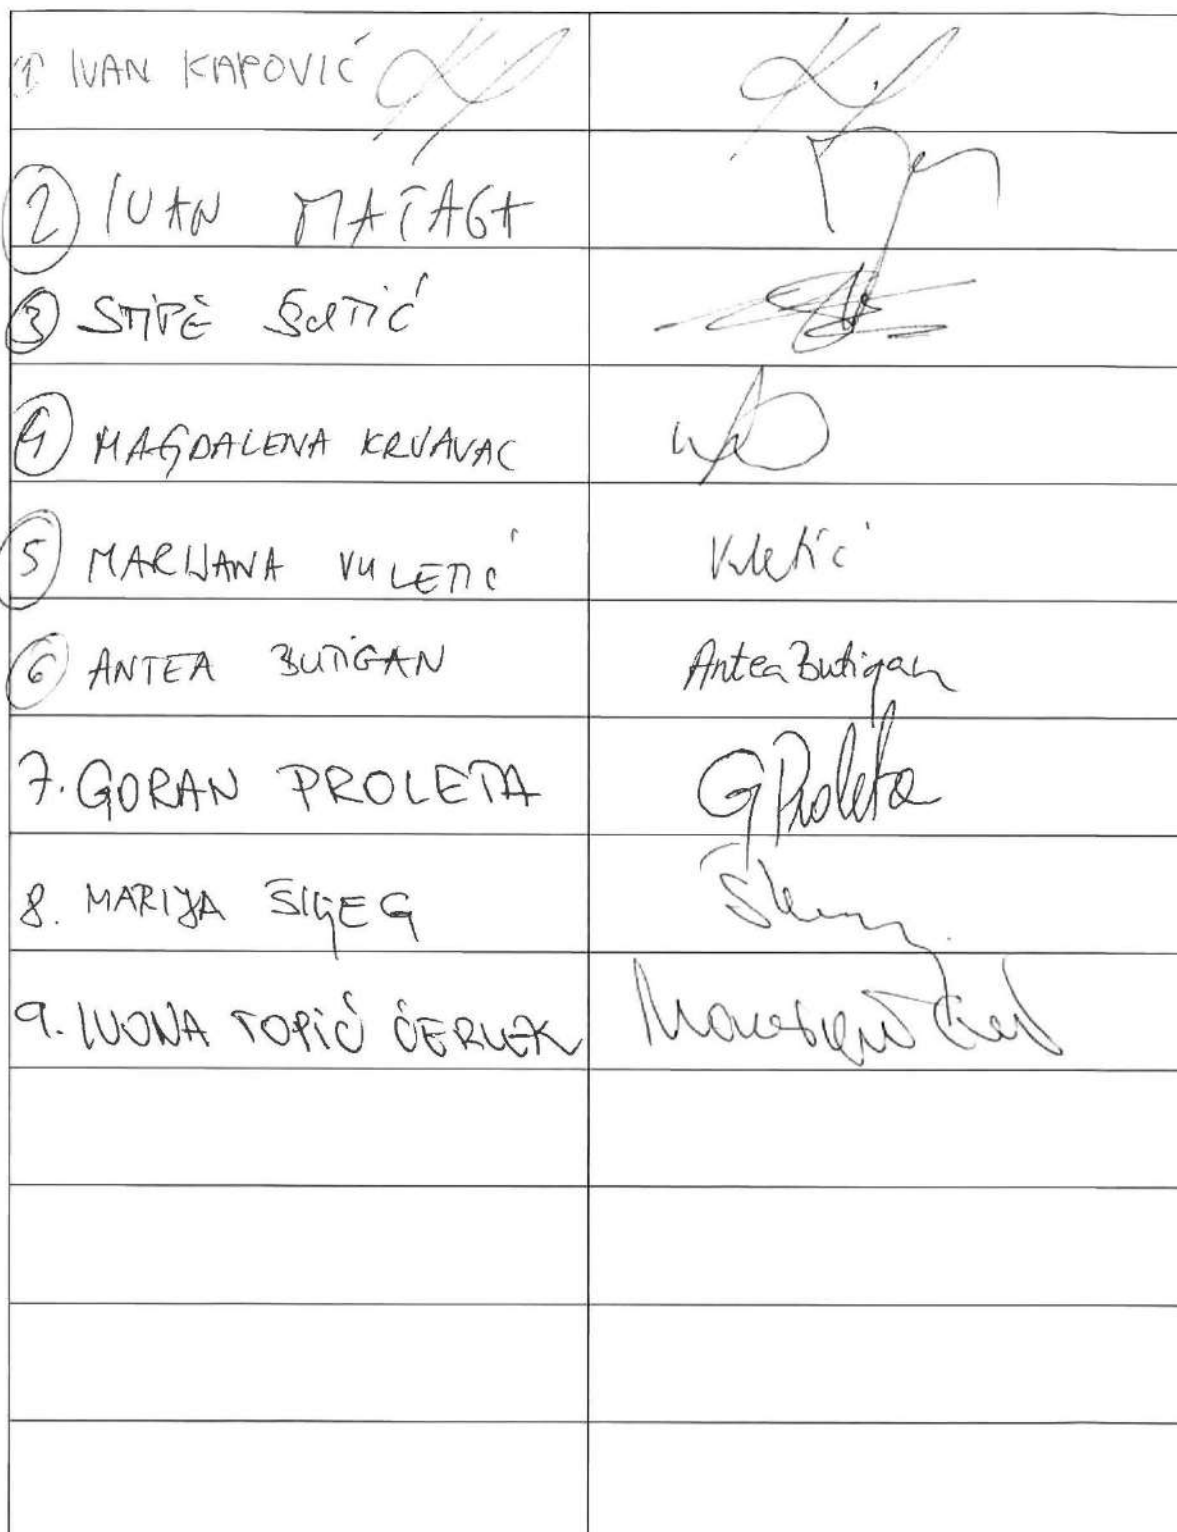 1 IVAN KAPOVIĆ
2 IVAN MATAGA
3 STIPE
4 MAGDALENA KRVAVAC
5 MARIJANA VULETIĆ Vuletić
6 ANTEA BUTIGAN Antea Butigan
7. GORAN PROLETA G Proleta
8. MARIJA ŠILJEG
9. IVONA TOPIĆ ČERLEK